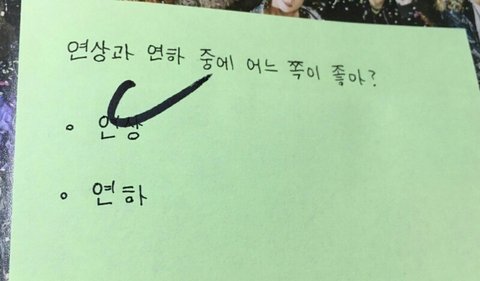 연상과 연하 중에 어느 쪽이 좋아?
◦ 연상
◦ 연하